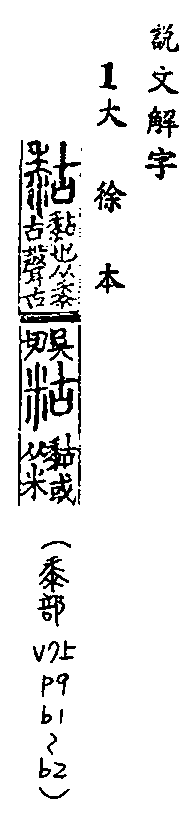 說文解字
1大徐本
䵞黏也从黍古聲户
吳切䊀䵞或从米
(黍部 V7上 P9 b1~b2)